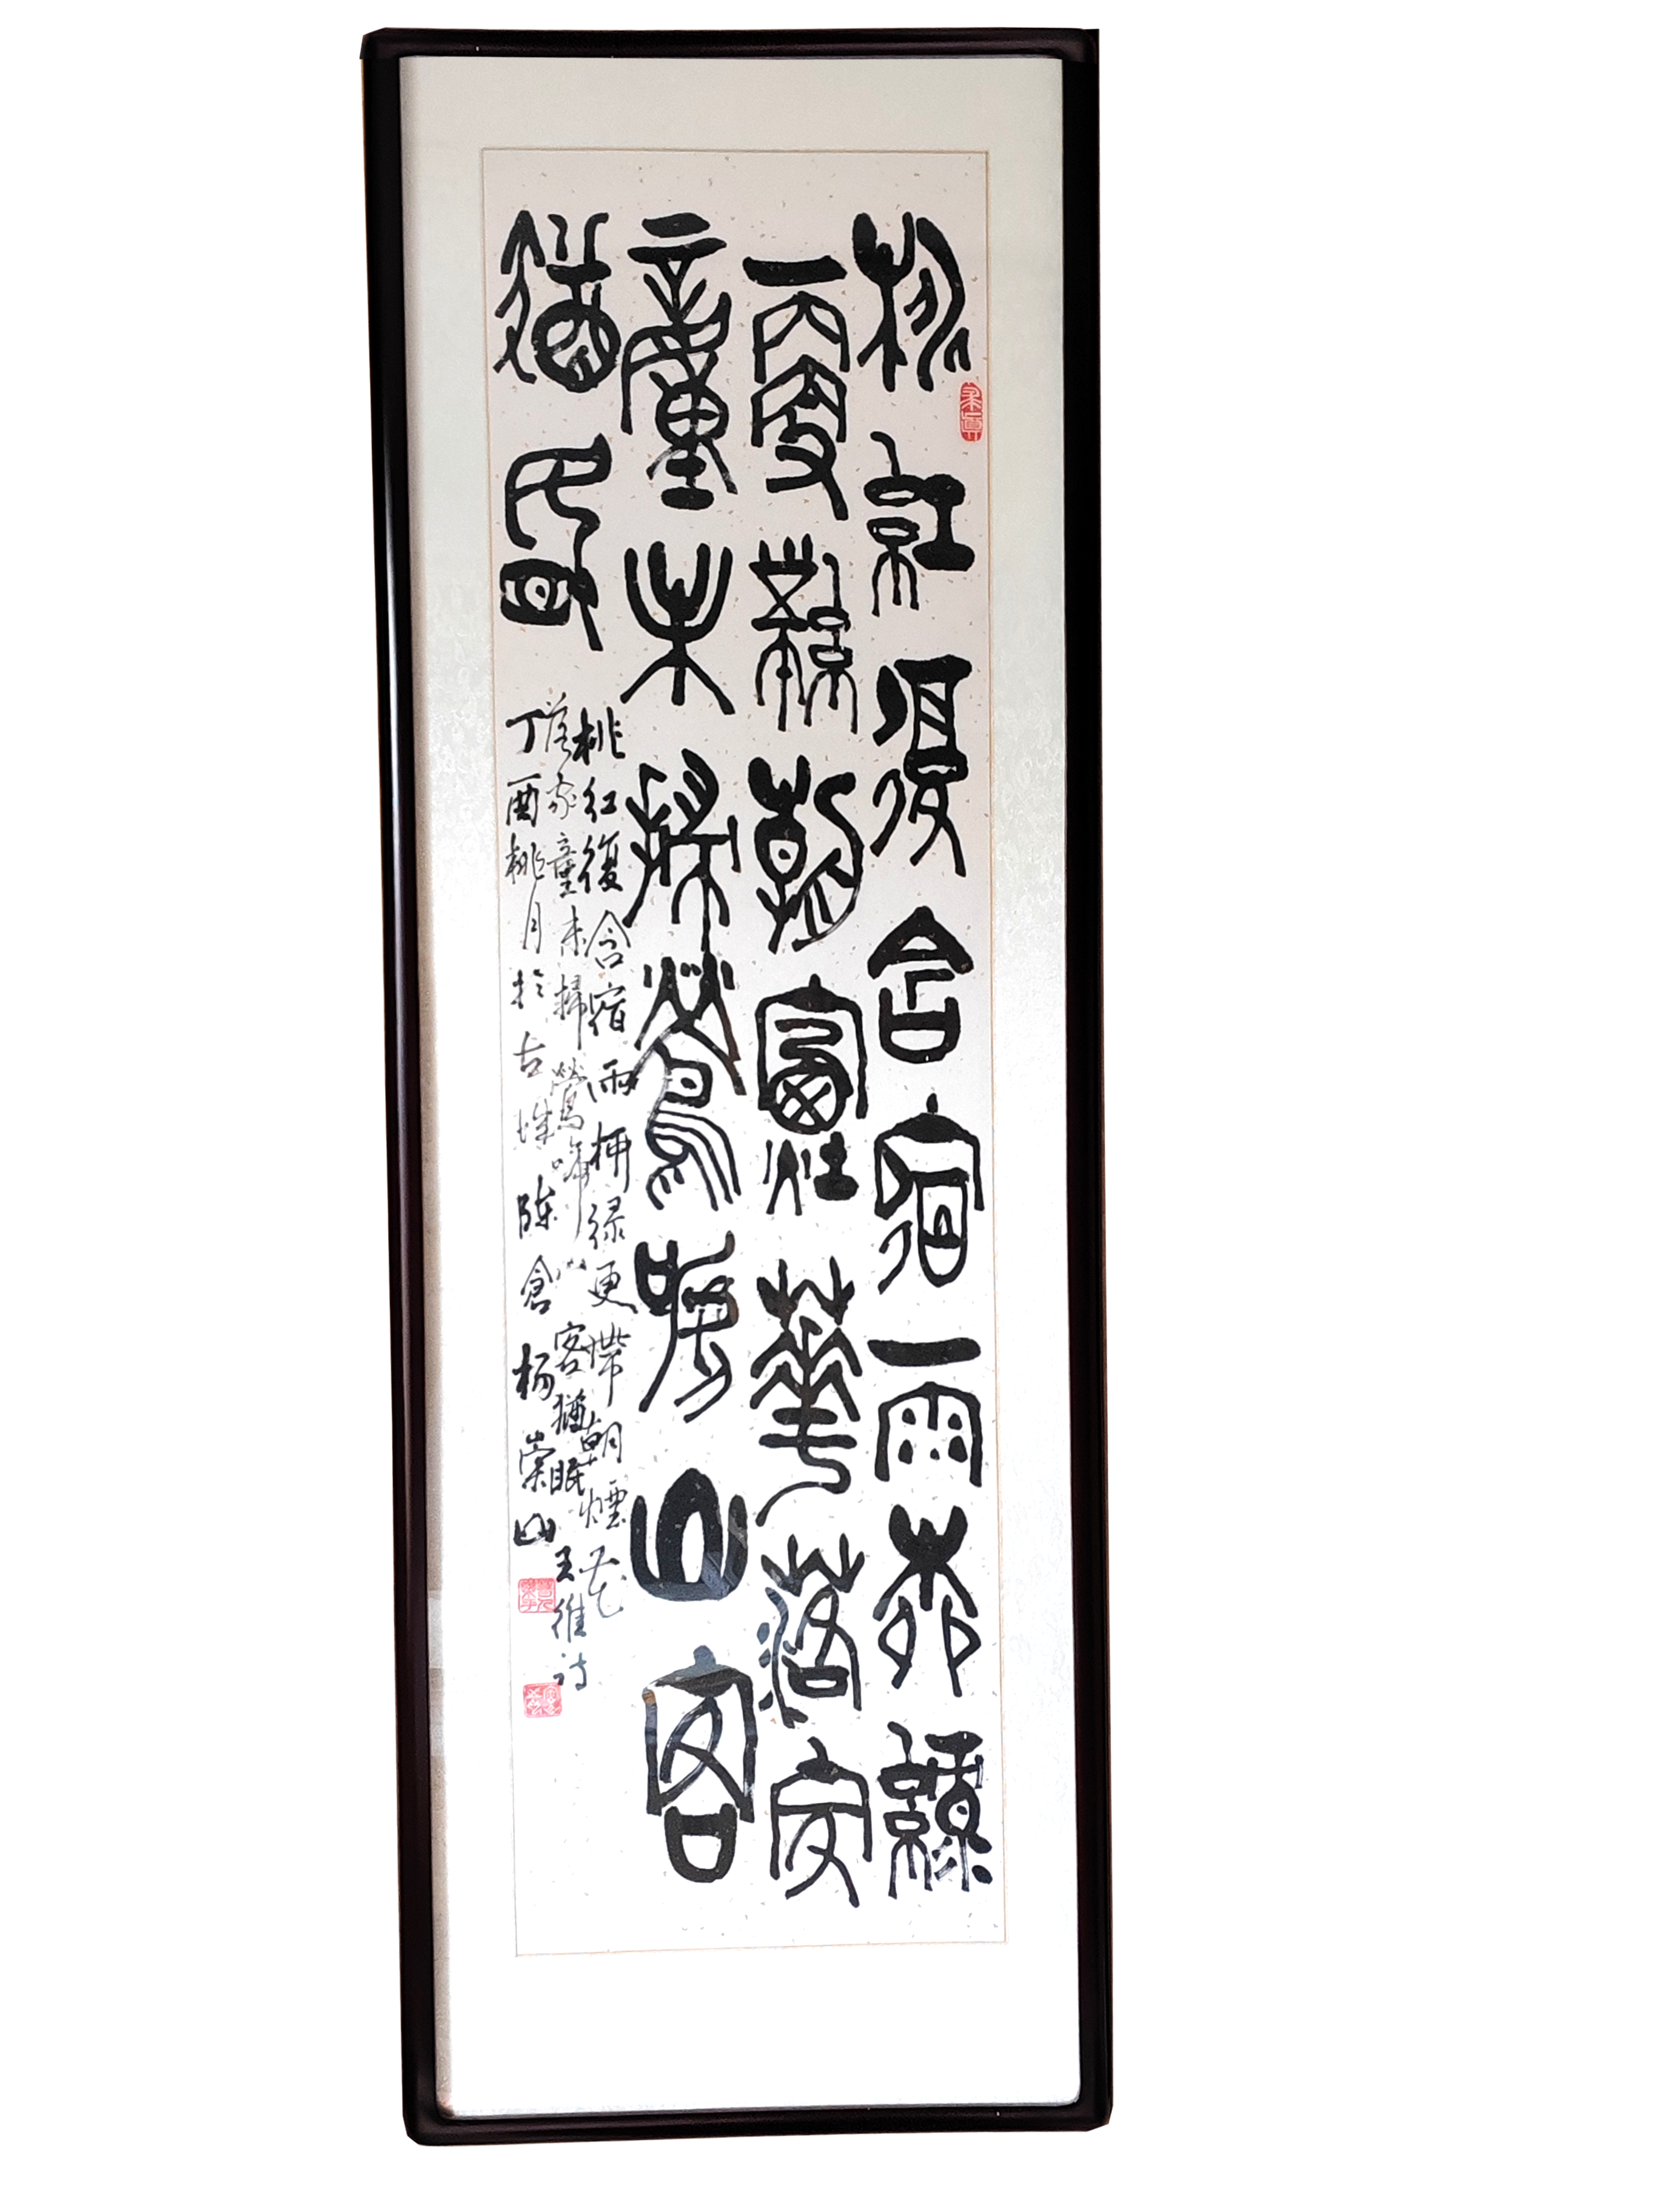 桃紅復含宿雨柳綠
更帶朝煙花落家
童未掃鶯啼山客
猶眠
桃紅復含宿雨柳绿更帶朝煙花
落家童未掃鶯啼山客猶眠王維诗
丁酉桃月於古城陳倉楊崇山